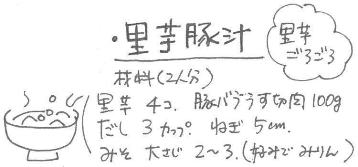 ・里芋豚汁
里芋
ごろごろ
材料(2人分)
里芋 4コ. 豚バラうす切肉100g
だし 3カップ. ねぎ 5cm.
みそ 大さじ 2〜3 (好みでみりん)